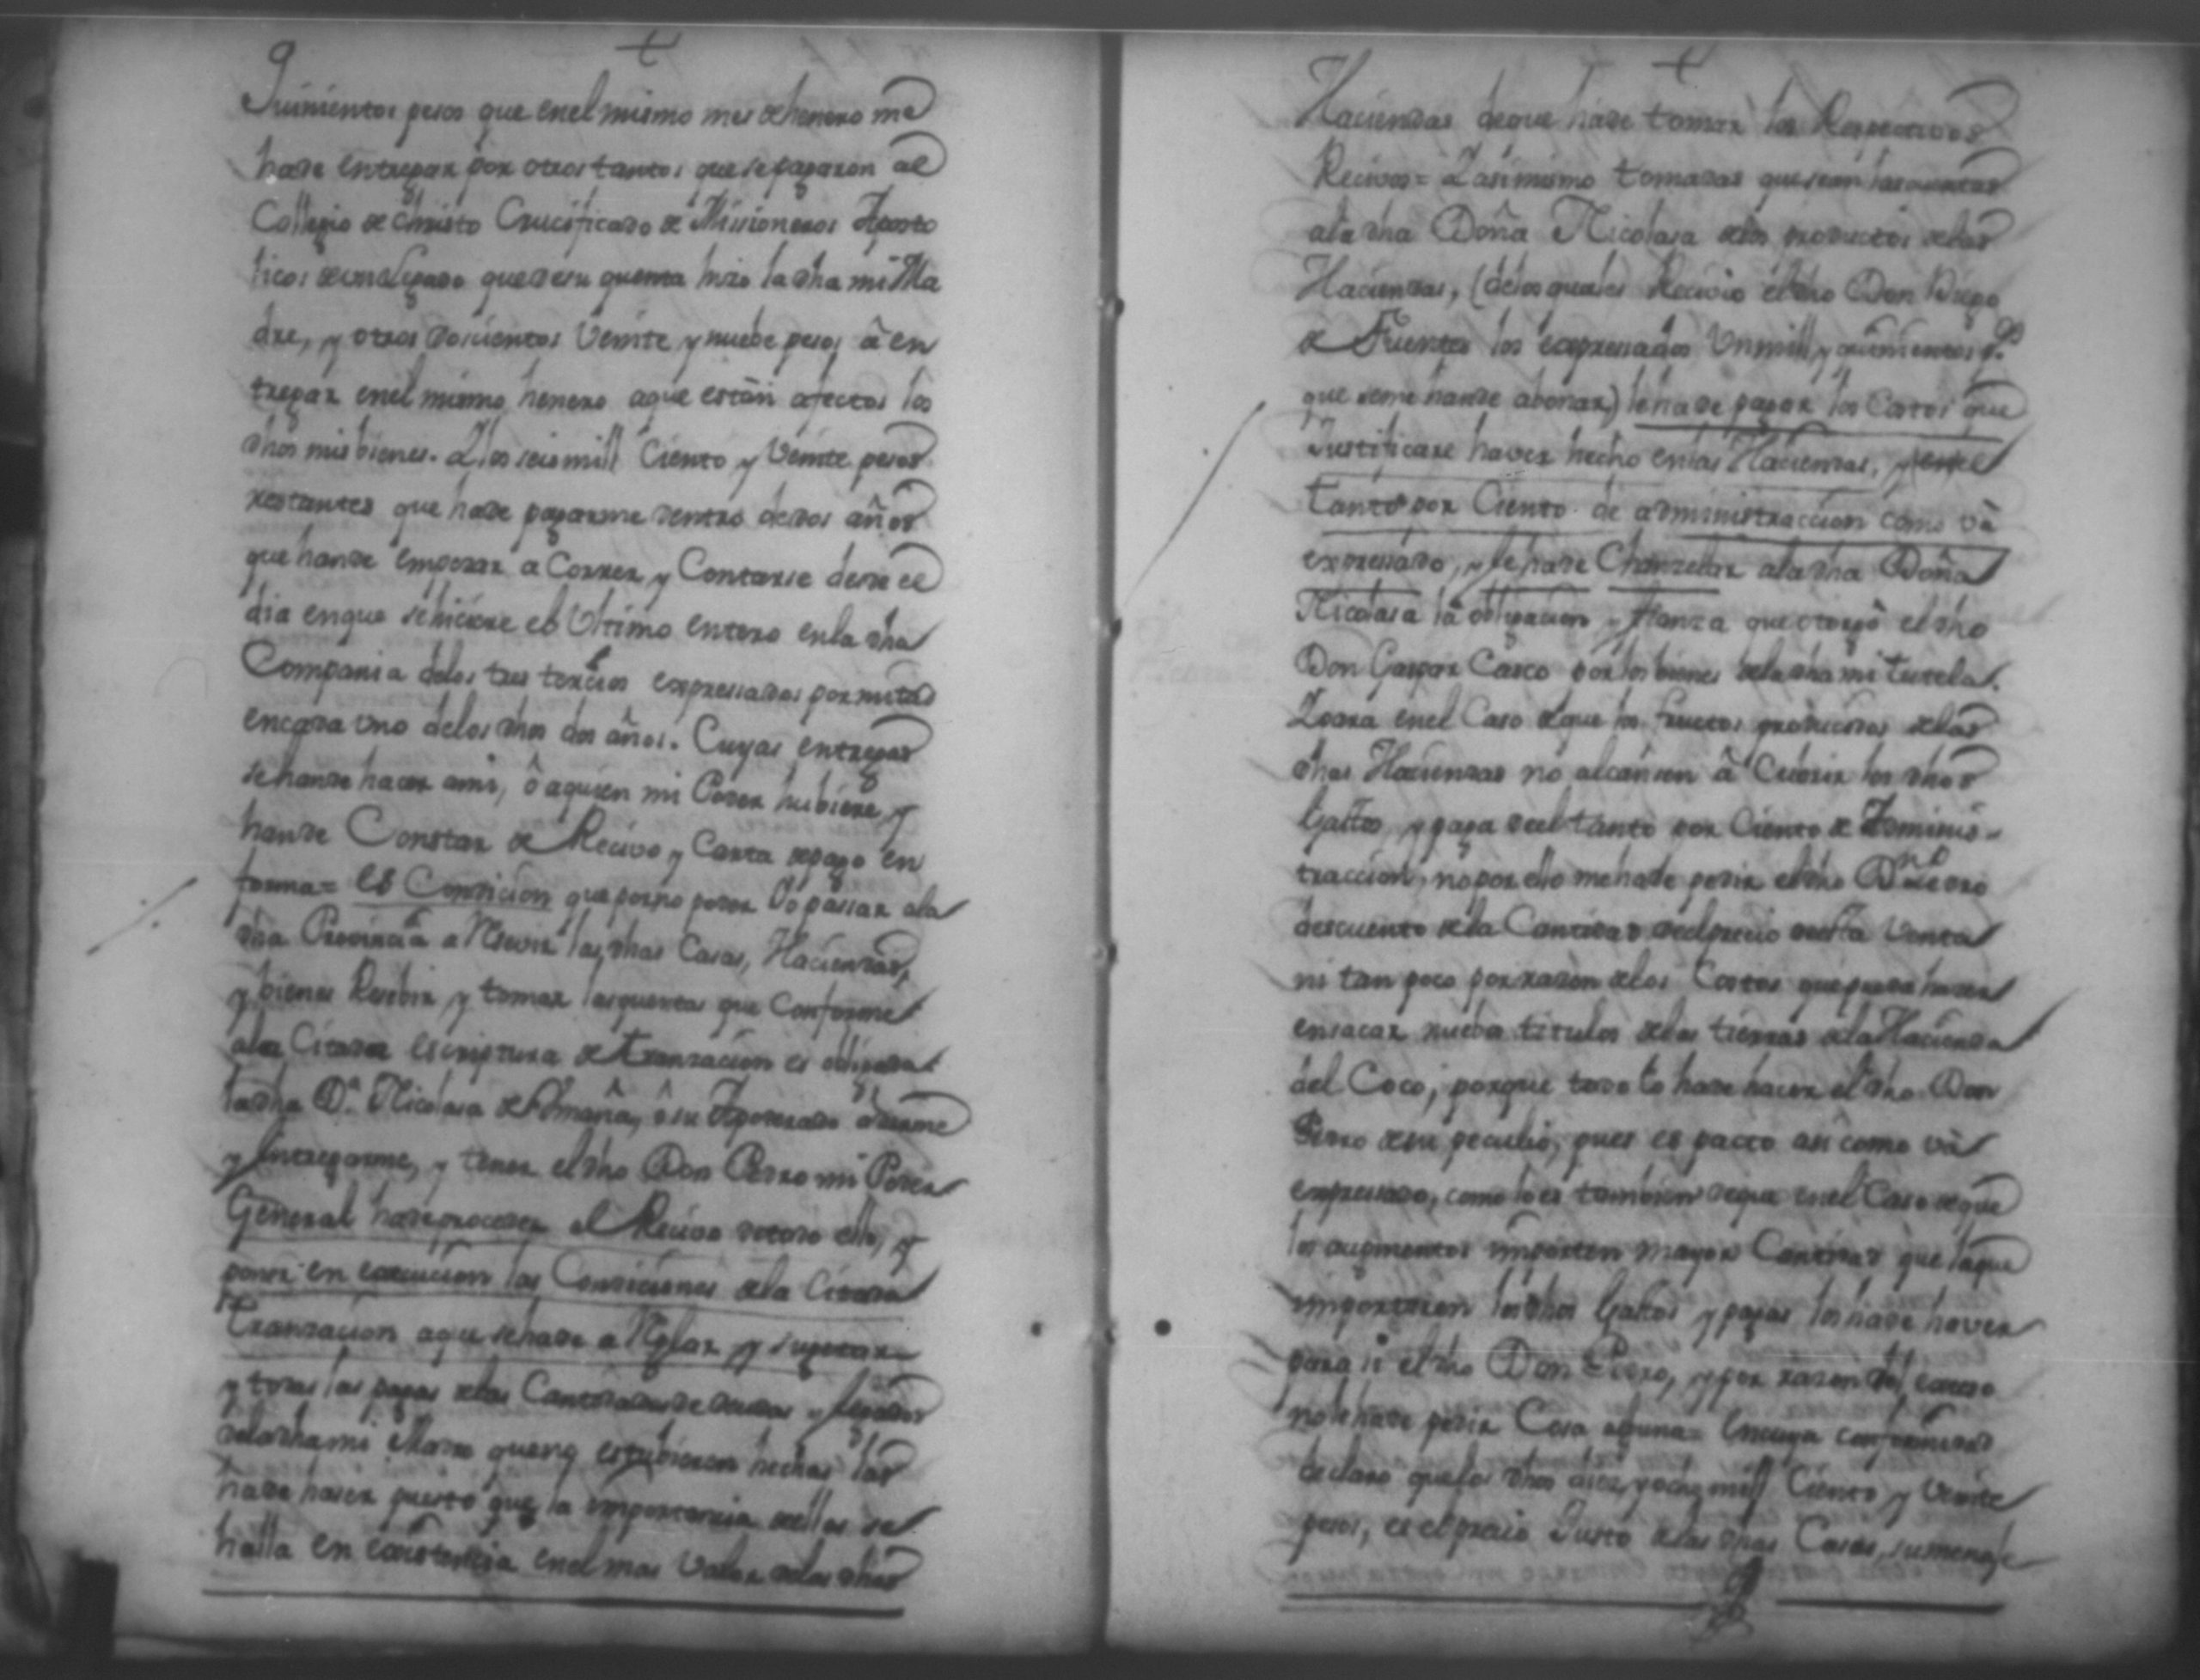 Quinientos pesos que enel mismo mes de henero me
hade entregar por otros tantos que se pagaron al
Collegio de Christo Crucificado de Missioneros Aposto
licos de un Legado que desu quema hizo la dha mi Ma
dre, y otros doscientos Veinte y nuebe pesos â en
tregar enel mismo henero aque están afectos los
dhos mis bienes. Y los seis mill Ciento y Veinte pesos
restantes que hade pagarme dentro de dos años
que hande empezar a Correr, y Contarse desde el
dia enque se hiciere el Vltimo entero enla dha
Compania delos tres tercios expressados por mitad
encada Vno delos dhos dos años. Cuyas entregas
se hande hacer ami, ô aquien mi Poder hubiere, y
hande Constar de Recivo y Carta de pago en
forma= es Condicion que por no poder Yo passar ala
dha Provincia a Recivir las dhas Casas, Haciendas,
y bienes Resebir y tomar las quentas que Conforme
ala Citada escriptura de tranzacion es obligada
la dha D.ª Nicolasa de Omaña, ô su Apoderado â darme
y entregarme, y tener el dho Don Pedro mi Poder
General hade proceder al Recivo de todo ello, y
poner en execucion las Condiciones dela Citada
Tranzacion aque sehade a Reglar y sugetar
y todas las pagas delas Cantidades de deudas y legados
dela dha mi Madre que no estubieren hechas las
hade hacer puesto que la importancia dellas se
halla en existencia enel mas Valor delas dhas
Haciendas deque hade tomar los Respectivos
Recivos= Y asimismo tomadas que sean las quentas
ala dha Doña Nicolasa delos productos delas
Haciendas, (delos quales Recivio el dho Don Diego
de Fuentes los expressados Vn mill y quinientos p.s
que seme hande abonar) le hade pagar los Costos que
Justificare haver hecho enlas Haciendas, y enel
tanto por Ciento de administraccion como vâ
expressado, y le hade Chanzelar ala dha Doña
Nicolasa la obligacion y fianza que otorgô el dho
Don Gaspar Casco por los bienes dela dha mi tutela.
Y para enel Caso deque los fructos producidos delas
dhas Haciendas no alcansen â Cubrir los dhos
Gastos y paga del tanto por Ciento de Adminis-
traccion, no por ello me hade pedir el dho Dn Pedro
descuento dela Cantidad del precio desta Venta
ni tan poco por razon delos Costos que pueda hacer
ensacar nueba titulos delas tierras dela Hacienda
del Coco, porque todo lo hade hacer el dho Don
Pedro desu peculio, pues es pacto asi como vâ
expressado, como lo es tambien deque enel Caso deque
los augmentos importen mayor Cantidad que laque
importaren los dhos Gastos y pagas los hade haver
para si el dho Don Pedro, y por razon del exceso
no le hade pedir Cosa alguna= Encuya conformidad
declaro que los dhos diez y ocho mill Ciento y Veinte
pesos, es el precio Justo delas dhas Casas, su menaje